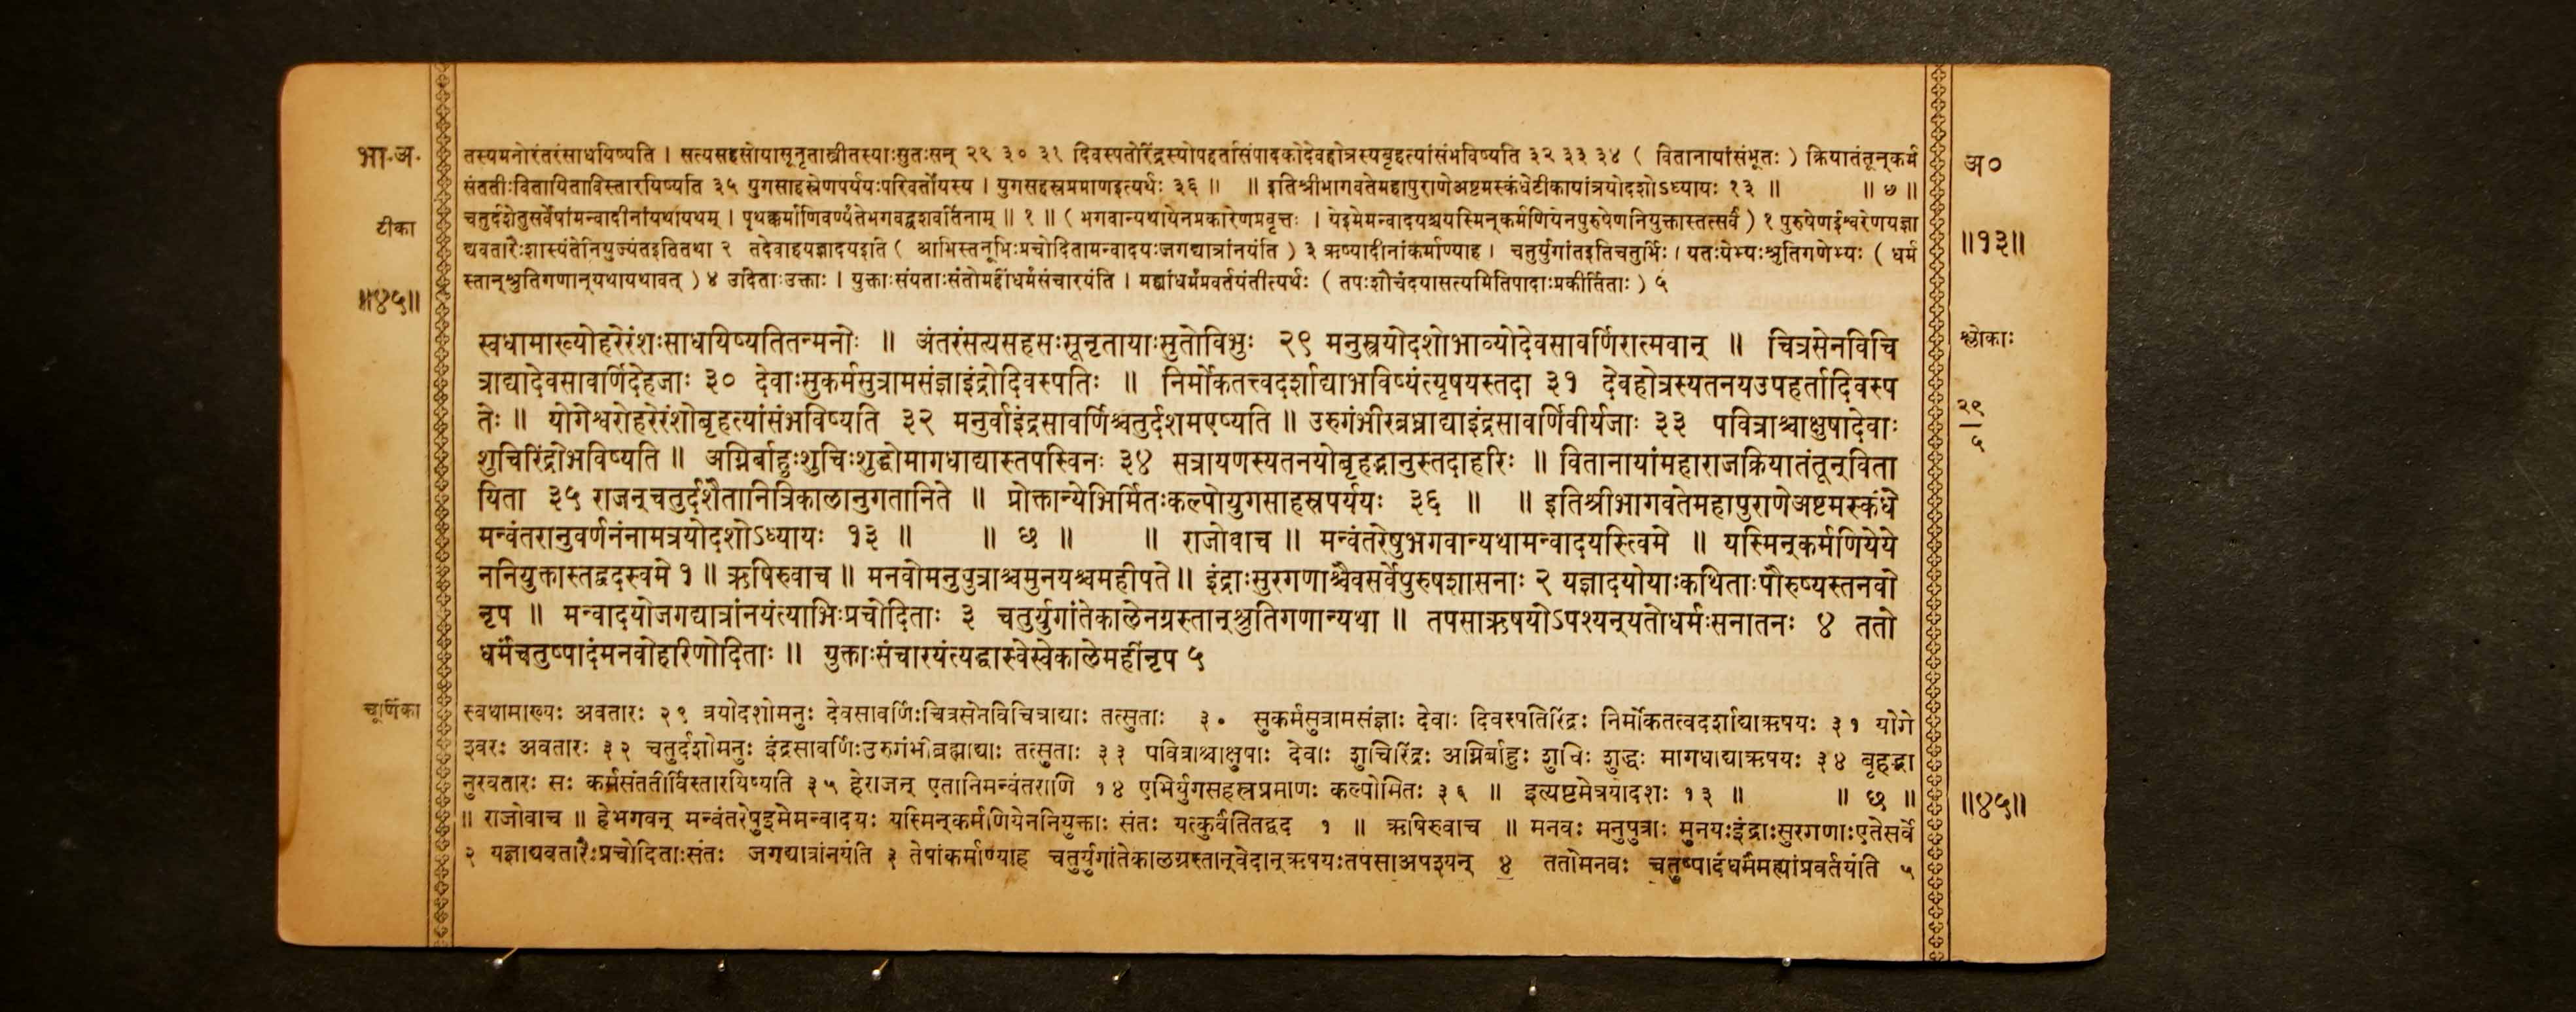 भा.अ.
तस्यमनोरंतरंसाधयिष्यति । सत्यसहसोयासूनृतास्त्रीतस्याःसुतःसन् २९ ३० ३१ दिवस्पतोरिंद्रस्योपहर्तासंपादकोदेवहोत्रस्यबृहत्यांसंभविष्यति ३२ ३३ ३४ ( वितानायांसंभूतः ) क्रियातंतून्‌कर्म
संततीःवितायिताविस्तारयिष्यति ३५ युगसाहस्रेणपर्ययःपरिवर्तोयस्य । युगसहस्रप्रमाणइत्यर्थः ३६ ॥ ॥ इतिश्रीभागवतेमहापुराणेअष्टमस्कंधेटीकायांत्रयोदशोऽध्यायः १३ ॥ ॥ ७ ॥
टीका
चतुर्दशेतुसर्वेषांमन्वादीनांयथायथम् । पृथक्कर्माणिवर्ण्यंतेभगवद्वशवर्तिनाम् ॥ १ ॥ ( भगवान्यथायेनप्रकारेणप्रवृत्तः । येइमेमन्वादयश्चयस्मिन्‌कर्मणियेनपुरुषेणनियुक्तास्तत्सर्वं ) १ पुरुषेणईश्वरेणयज्ञा
द्यवतारैःशास्यंतेनियुज्यंतइतितथा २ तदेवाहयज्ञादयइति ( आभिस्तनूभिःप्रचोदितामन्वादयःजगद्यात्रांनयंति ) ३ ऋष्यादीनांकर्माण्याह । चतुर्युगांतइतिचतुर्भिः । यतःयेभ्यःश्रुतिगणेभ्यः ( धर्म
स्तान्‌श्रुतिगणान्‌यथायथावत् ) ४ उदिताःउक्ताः । युक्ताःसंयताःसंतोमहींधर्मंसंचारयंति । मह्यांधर्मंप्रवर्तयंतीत्यर्थः ( तपःशौचंदयासत्यमितिपादाःप्रकीर्तिताः ) ५
॥४५॥
अ०
॥१३॥
स्वधामाख्योहरेरंशःसाधयिष्यतितन्मनोः ॥ अंतरंसत्यसहसःसूनृतायाःसुतोविभुः २९ मनुस्त्रयोदशोभाव्योदेवसावर्णिरात्मवान् ॥ चित्रसेनविचि
त्राद्यादेवसावर्णिदेहजाः ३० देवाःसुकर्मसुत्रामसंज्ञाइंद्रोदिवस्पतिः ॥ निर्मोकतत्त्वदर्शाद्याभविष्यंत्यृषयस्तदा ३१ देवहोत्रस्यतनयउपहर्तादिवस्प
तेः ॥ योगेश्वरोहरेरंशोबृहत्यांसंभविष्यति ३२ मनुर्वाइंद्रसावर्णिश्चतुर्दशमएष्यति ॥ उरुगंभीरब्रध्नाद्याइंद्रसावर्णिवीर्यजाः ३३ पवित्राश्चाक्षुषादेवाः
शुचिरिंद्रोभविष्यति ॥ अग्निर्बाहुःशुचिःशुद्धोमागधाद्यास्तपस्विनः ३४ सत्रायणस्यतनयोबृहद्भानुस्तदाहरिः ॥ वितानायांमहाराजक्रियातंतून्‌विता
यिता ३५ राजन्‌चतुर्दशैतानित्रिकालानुगतानिते ॥ प्रोक्तान्येभिर्मितःकल्पोयुगसाहस्रपर्ययः ३६ ॥ ॥ इतिश्रीभागवतेमहापुराणेअष्टमस्कंधे
मन्वंतरानुवर्णनंनामत्रयोदशोऽध्यायः १३ ॥ ॥ छ ॥ ॥ राजोवाच ॥ मन्वंतरेषुभगवान्यथामन्वादयस्त्विमे ॥ यस्मिन्‌कर्मणियेये
ननियुक्तास्तद्वदस्वमे १ ॥ ऋषिरुवाच ॥ मनवोमनुपुत्राश्चमुनयश्चमहीपते ॥ इंद्राःसुरगणाश्चैवसर्वेपुरुषशासनाः २ यज्ञादयोयाःकथिताःपौरुष्यस्तनवो
नृप ॥ मन्वादयोजगद्यात्रांनयंत्याभिःप्रचोदिताः ३ चतुर्युगांतेकालेनग्रस्तान्‌श्रुतिगणान्यथा ॥ तपसाऋषयोऽपश्यन्‌यतोधर्मःसनातनः ४ ततो
धर्मंचतुष्पादंमनवोहरिणोदिताः ॥ युक्ताःसंचारयंत्यद्धास्वेस्वेकालेमहींनृप ५
श्लोकाः
२९
५
चूर्णिका
स्वधामाख्यः अवतारः २९ त्रयोदशोमनुः देवसावर्णिःचित्रसेनविचित्राद्याः तत्सुताः ३० सुकर्मसुत्रामसंज्ञाः देवाः दिवस्पतिरिंद्रः निर्मोकतत्वदर्शाद्याऋषयः ३१ योगे
श्वरः अवतारः ३२ चतुर्दशोमनुः इंद्रसावर्णिःउरुगंभीब्रह्माद्याः तत्सुताः ३३ पवित्राश्चाक्षुषाः देवाः शुचिरिंद्रः अग्निर्बाहुः शुचिः शुद्धः मागधाद्याऋषयः ३४ बृहद्भा
नुरवतारः सः कर्मसंततीर्विस्तारयिष्यति ३५ हेराजन् एतानिमन्वंतराणि १४ एभिर्युगसहस्रप्रमाणः कल्पोमितः ३६ ॥ इत्यष्टमेत्रयोदशः १३ ॥ ॥ छ ॥
॥ राजोवाच ॥ हेभगवन् मन्वंतरेषुइमेमन्वादयः यस्मिन्‌कर्मणियेननियुक्ताः संतः यत्कुर्वंतितद्वद १ ॥ ऋषिरुवाच ॥ मनवः मनुपुत्राः मुनयःइंद्राःसुरगणाःएतेसर्वे
२ यज्ञाद्यवतारैःप्रचोदिताःसंतः जगद्यात्रांनयंति ३ तेषांकर्माण्याह चतुर्युगांतेकालग्रस्तान्‌वेदान्‌ऋषयःतपसाअपश्यन् ४ ततोमनवः चतुष्पादंधर्मंमह्यांप्रवर्तयंति ५
॥४५॥